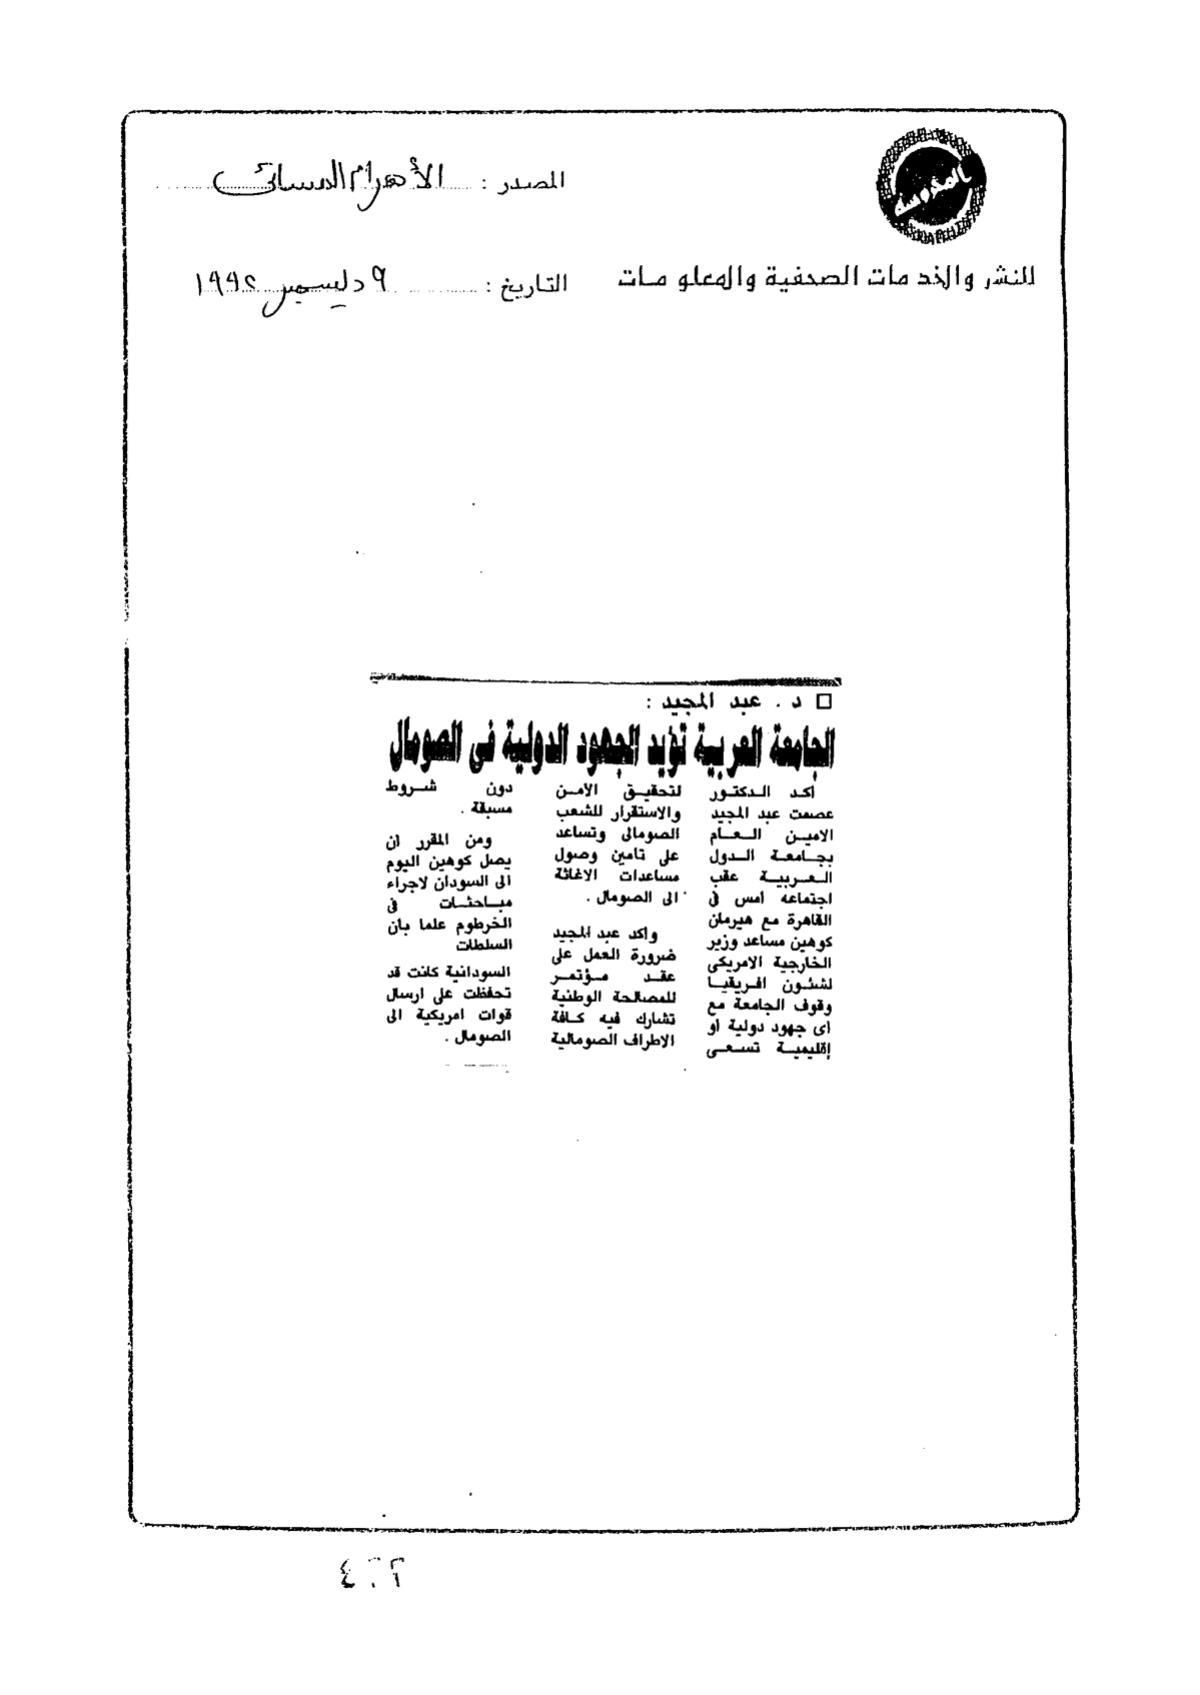 المصدر : الأهرام المسائى
للنشر والخدمات الصحفية والمعلومات
التاريخ : ٩ ديسمبر ١٩٩٢
□ د . عبد المجيد :
الجامعة العربية تؤيد الجهود الدولية فى الصومال
اكد الدكتور
عصمت عبد المجيد
الامين العام
بجامعة الدول
العربية عقب
اجتماعه امس فى
القاهرة مع هيرمان
كوهين مساعد وزير
الخارجية الامريكى
لشئون افريقيا
وقوف الجامعة مع
اى جهود دولية او
إقليمية تسعى
لتحقيق الامن
والاستقرار للشعب
الصومالى وتساعد
على تامين وصول
مساعدات الاغاثة
الى الصومال .
واكد عبد المجيد
ضرورة العمل على
عقد مؤتمر
للمصالحة الوطنية
تشارك فيه كافة
الاطراف الصومالية
دون شروط
مسبقة .
ومن المقرر ان
يصل كوهين اليوم
الى السودان لاجراء
مباحثات فى
الخرطوم علما بان
السلطات
السودانية كانت قد
تحفظت على ارسال
قوات امريكية الى
الصومال .